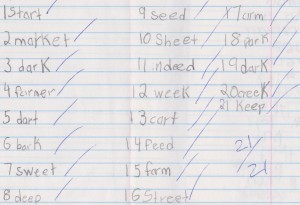 1 Start
2 market
3 darK
4 farmer
5 dart
6 barK
7 sweet
8 deep
9 seed
10 Sheet
11 indeed
12 week
13 cart
14 feed
15 farm
16 Street
17 arm
18 parK
19 darK
20
21 Keep
21/
21